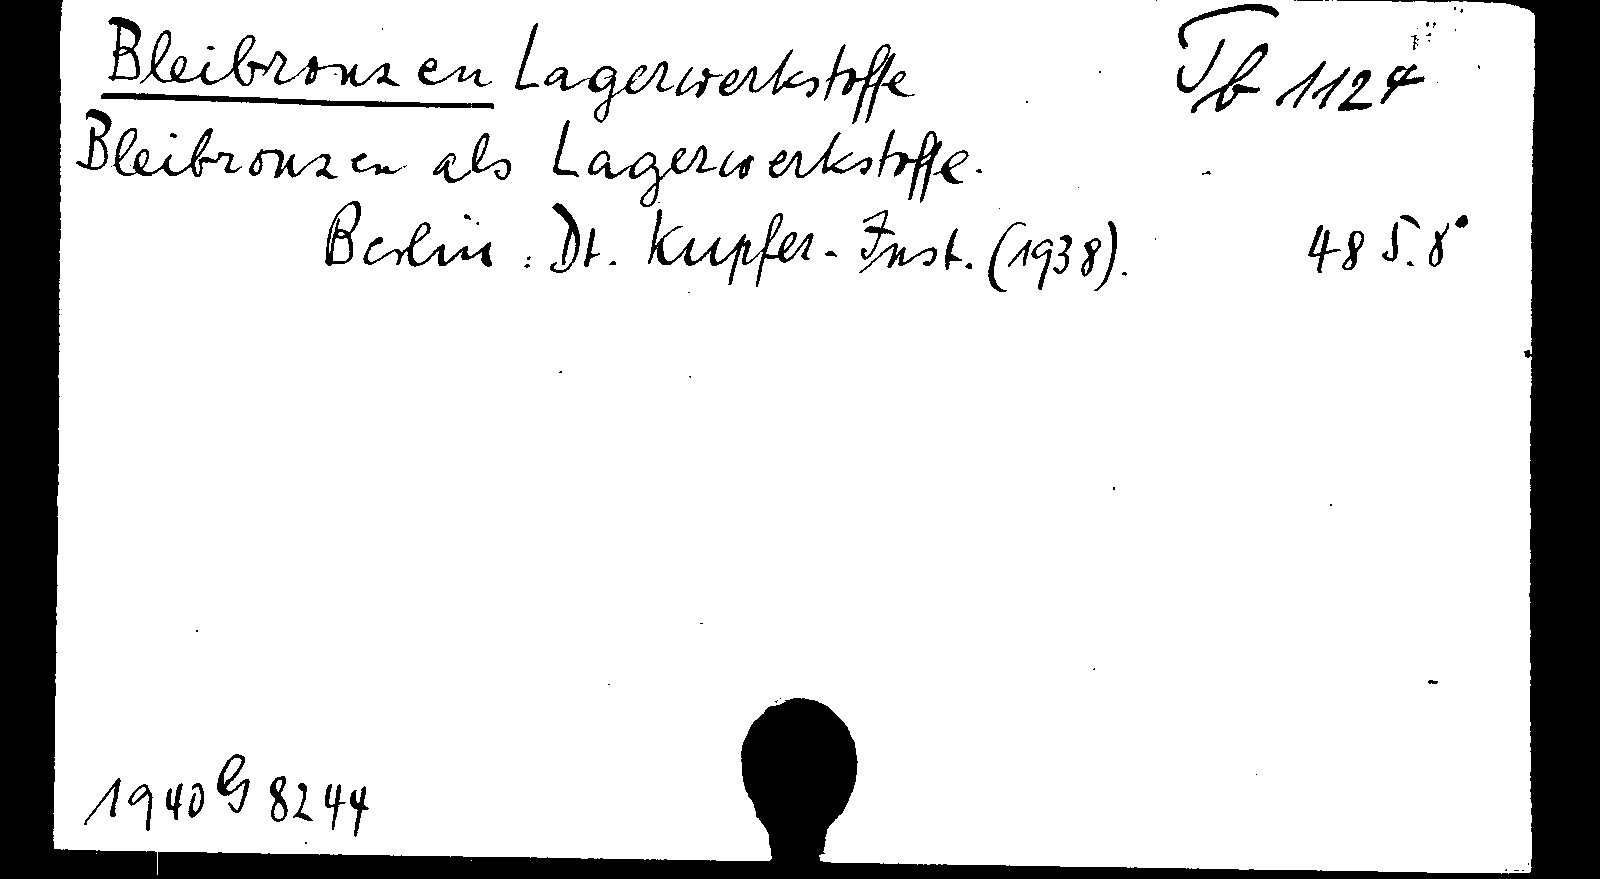 Bleibronzen Lagerwerkstoffe Tb 1124
Bleibronzen als Lagerwerkstoffe.
Berlin: Dt. Kupfer-Inst. (1938). 48 S. 8°
1940 G 8244